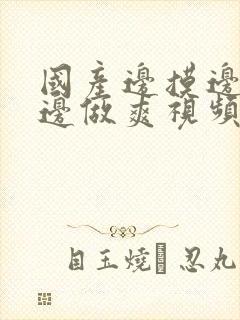 國產邊摸邊
邊做爽視頻
目玉燒 忍丸